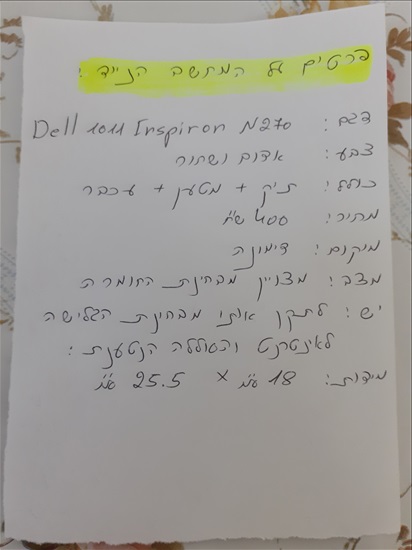 פרטים על המחשב הנייד :
דגם : Dell 1011 Inspiron N270
צבע : אדום ושחור
כולל : תיק + מטען + עכבר
מחיר : 400 ש"ח
מיקום : דימונה
מצב : מצויין מבחינת החומרה
יש : לתקן אותו מבחינת הגלישה
לאינטרנט והסוללה הנטענת :
מידות : 18 ס"מ × 25.5 ס"מ